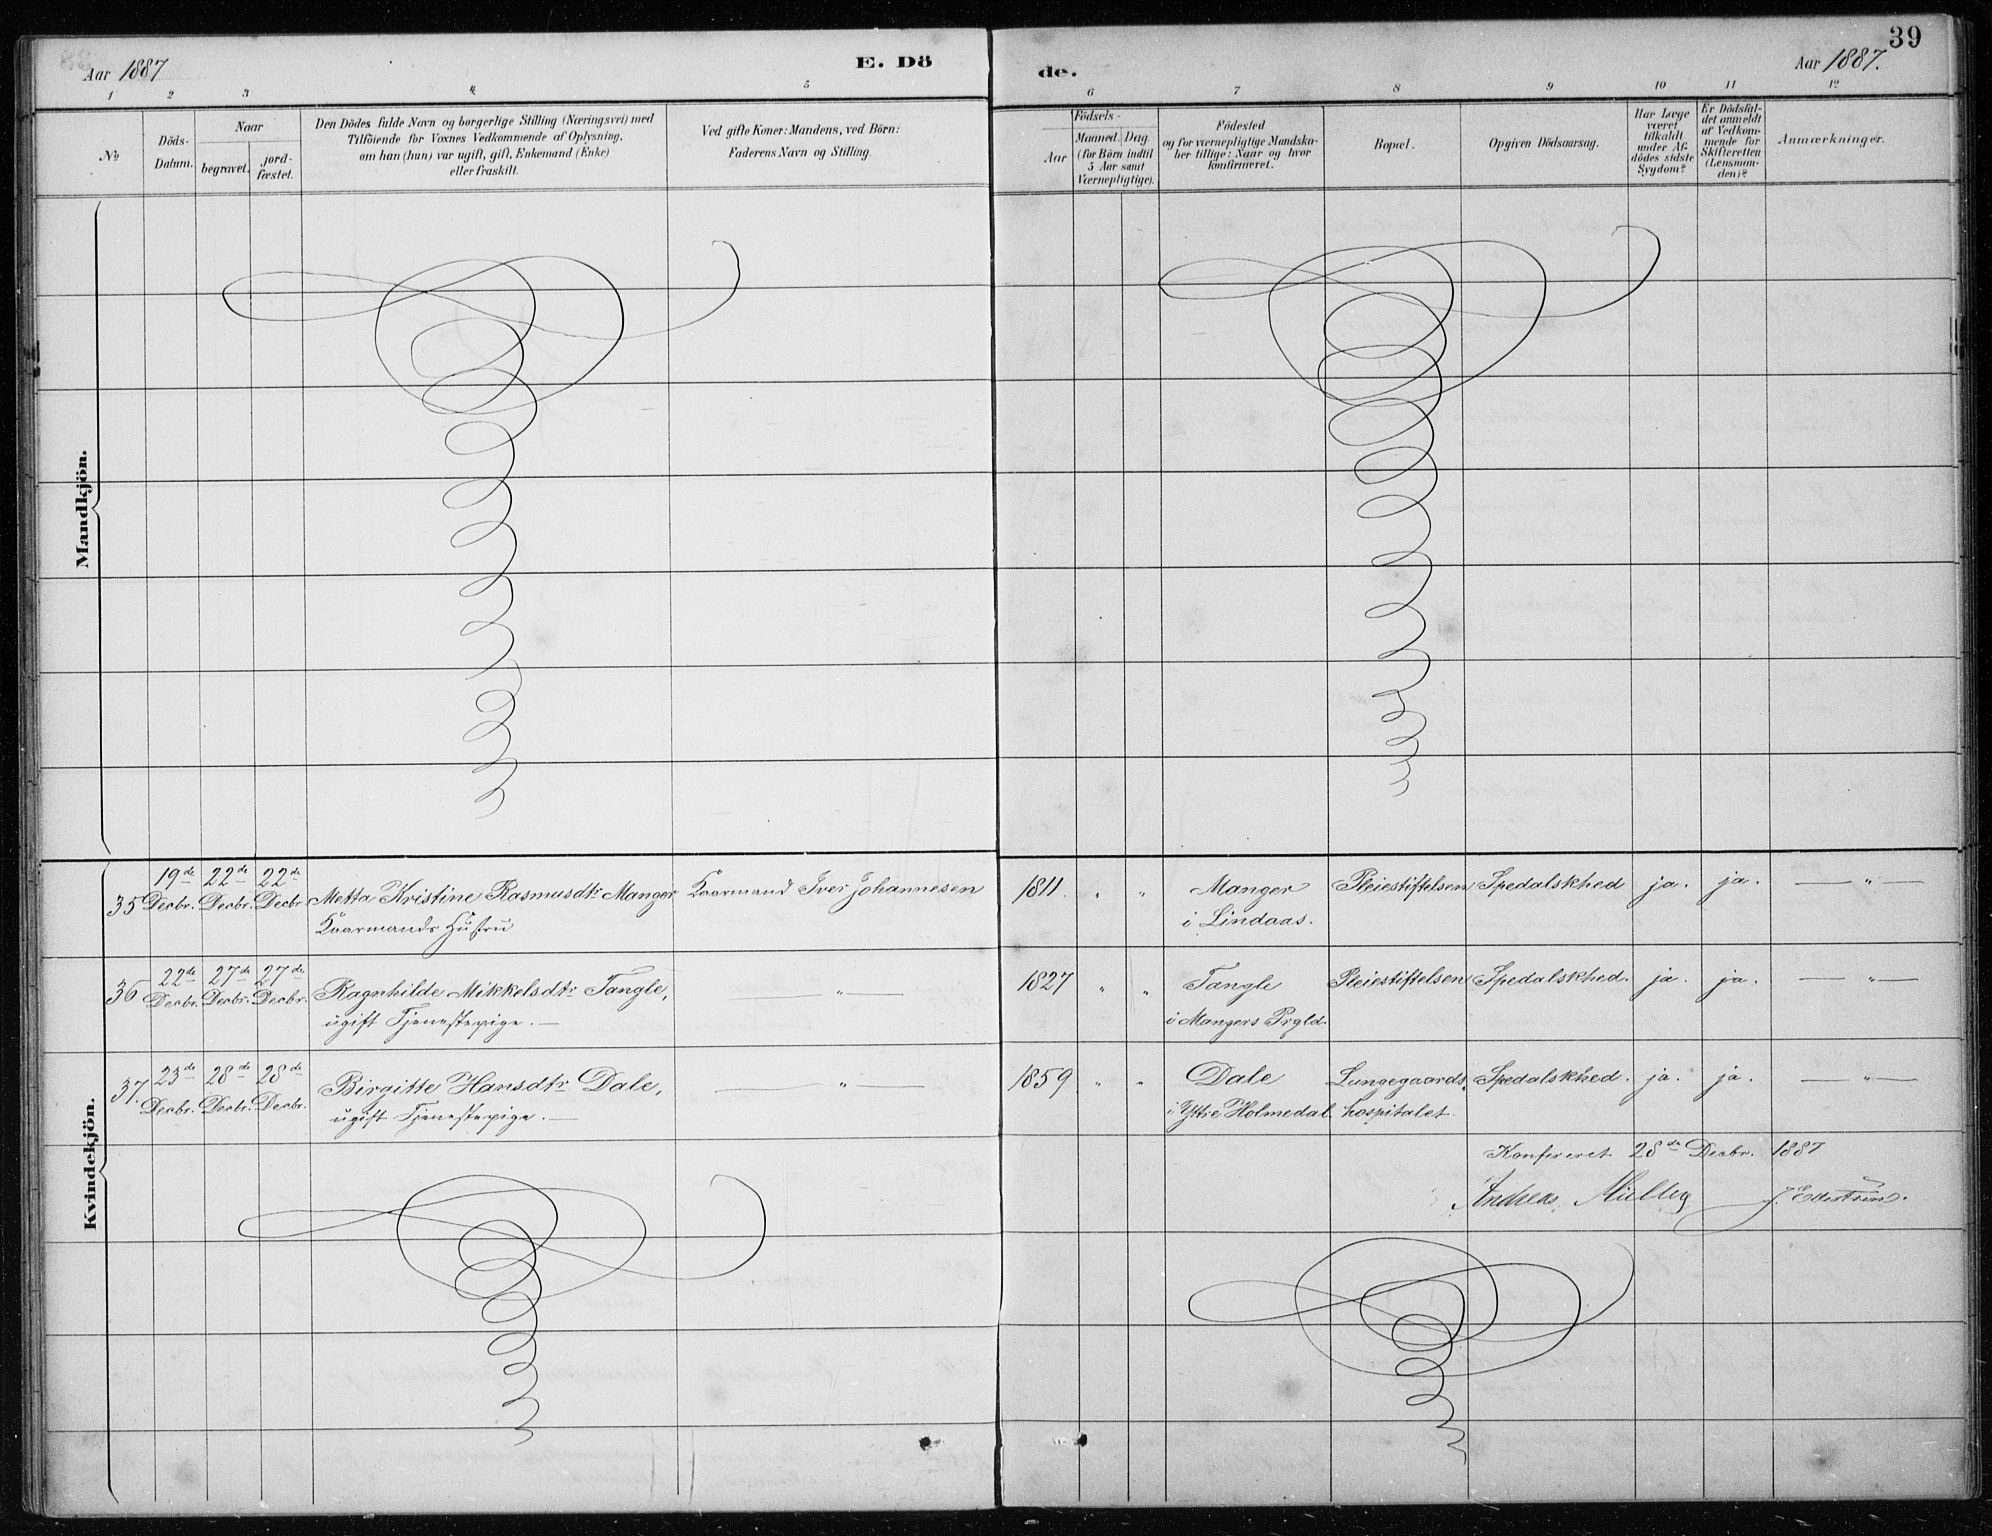 39
Aar 1887
E. Dö
de.
Aar 1887.
1 2 3 4 5 6 7 8 9 10 11 12
No
Döds-
Datum.
Naar
begravet.
jord-
fæstet.
Den Dödes fulde Navn og borgerlige Stilling (Næringsvei) med
Tilföiende for Voxnes Vedkommende af Oplysning,
om han (hun) var ugift, gift, Enkemand (Enke)
eller fraskilt.
Ved gifte Koner: Mandens, ved Börn:
Faderens Navn og Stilling.
Födsels-
Aar
Maaned.
Dag.
(for Börn indtil
5 Aar samt
Værnepligtige).
Födested
og for værnepligtige Mandska-
ber tillige: Naar og hvor
konfirmeret.
Bopæl.
Opgiven Dödsaarsag.
Har Læge
været
tilkaldt
under Af-
dödes sidste
Sygdom?
Er Dödsfal-
det anmeldt
af Vedkom-
mende for
Skifteretten
(Lensman-
den)?
Anmærkninger.
Mandkjön.
Kvindekjön.
35 19de Decbr. 22de Decbr. 22de Decbr. Metta Kristine Rasmusdtr. Manger Kaarmand Iver Johannesen 1811. " " Manger Pleiestiftelsen Spedalskhed ja. ja. — " —
Kaarmands Hustru i Lindaas.
36 22de Decbr. 27de Decbr. 27de Decbr. Ragnhilde Mikkelsdtr. Tangle, — " — 1827 " " Tangle Pleiestiftelsen Spedalskhed. ja. ja. — " —
ugift Tjenestepige. — i Mangers Prgld.
37. 23de Decbr. 28de Decbr. 28de Decbr. Birgitte Hansdtr. Dale, — " — 1859 " " Dale Lungegaards- Spedalskhed. ja. ja. — " —
ugift Tjenestepige. — i Yttre Holmedal. hospitalet.
Konfereret 28de Decbr. 1887
Andreas